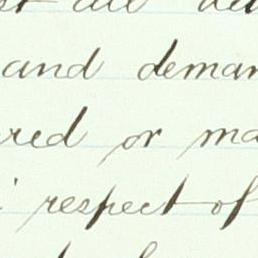 all
and deman
red or ma
respect of